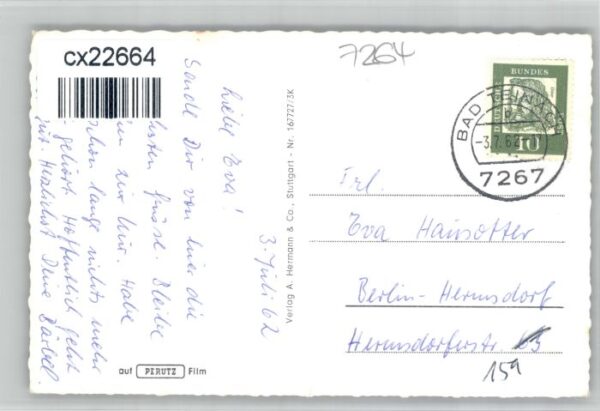 cx22664
7264
3. Juli 62
Liebe Eva!
Sende Dir von hier die
Grüsse. Bleibe
zur Kur. Habe
schon lange nichts mehr
gehört. Hoffentlich geht
Herzlichst Deine Bärbel.
auf PERUTZ Film
Verlag A. Hermann & Co., Stuttgart - Nr. 167727/3K
BUNDES
10
BAD
-3.7.62
7267
Frl.
Eva Hainotter
Berlin-Hermsdorf
Hermsdorferstr.
159